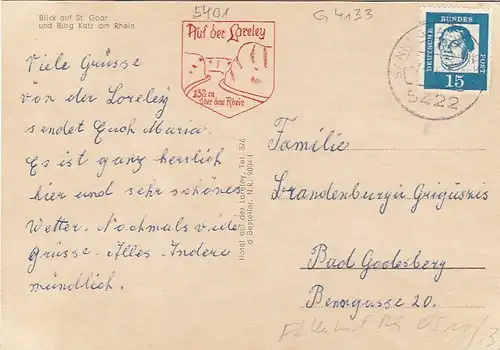 Blick auf St. Goar
und Burg Katz am Rhein
5401
G 4133
Auf der Loreley
132 m
über dem Rhein
DEUTSCHE BUNDES POST
15
5422
Viele Grüsse
von der Loreley
sendet Euch Maria.
Es ist ganz herrlich
hier und sehr schönes
Wetter. Nochmals viele
Grüsse. Alles Andere
mündlich.
Hotel auf der Loreley, Tel. 376
Familie
Brandenburg u. Griguszis
Bad Godesberg
Benngasse 20.